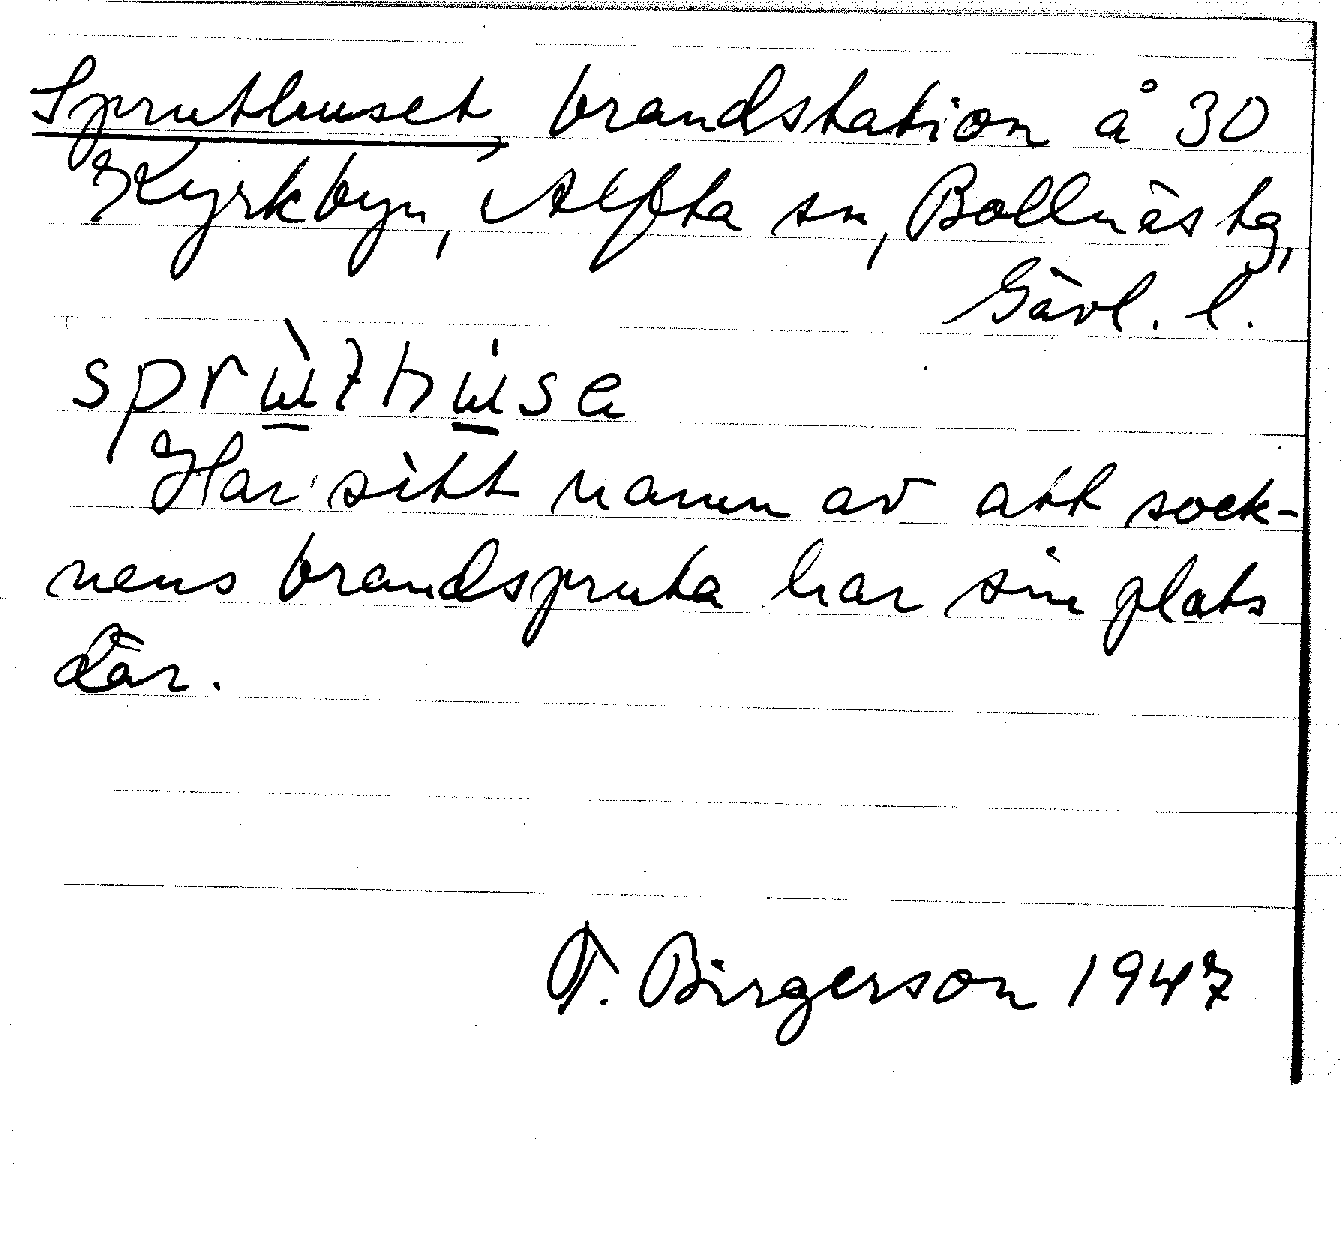 Spruthuset, brandstation å 30
Kyrkbyn, Alfta sn, Bollnäs tg,
Gävl. l.
sprɯ̀thɯ́sa
Har sitt namn av att sock-
nens brandspruta har sin plats
där.
T. Birgerson 1947